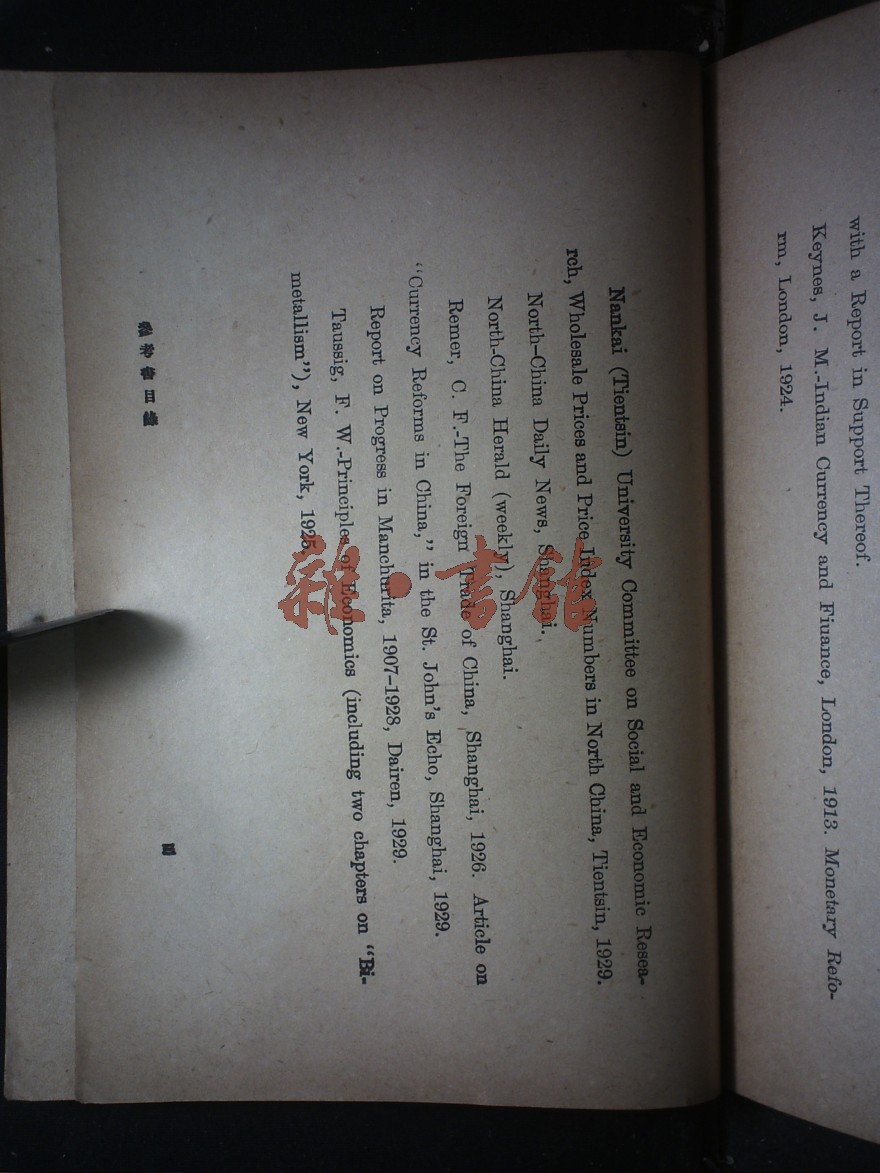 with a Report in Support Thereof.
Keynes, J. M.-Indian Currency and Fiuance, London, 1913. Monetary Refo-
rm, London, 1924.
Nankai (Tientsin) University Committee on Social and Economic Resea-
rch, Wholesale Prices and Price Index Numbers in North China, Tientsin, 1929.
North-China Daily News, Shanghai.
North-China Herald (weekly), Shanghai.
Remer, C. F.-The Foreign Trade of China, Shanghai, 1926. Article on
"Currency Reforms in China," in the St. John's Echo, Shanghai, 1929.
Report on Progress in Manchurita, 1907-1928, Dairen, 1929.
Taussig, F. W.-Principles of Economics (including two chapters on "Bi-
metallism"), New York, 1925.
四